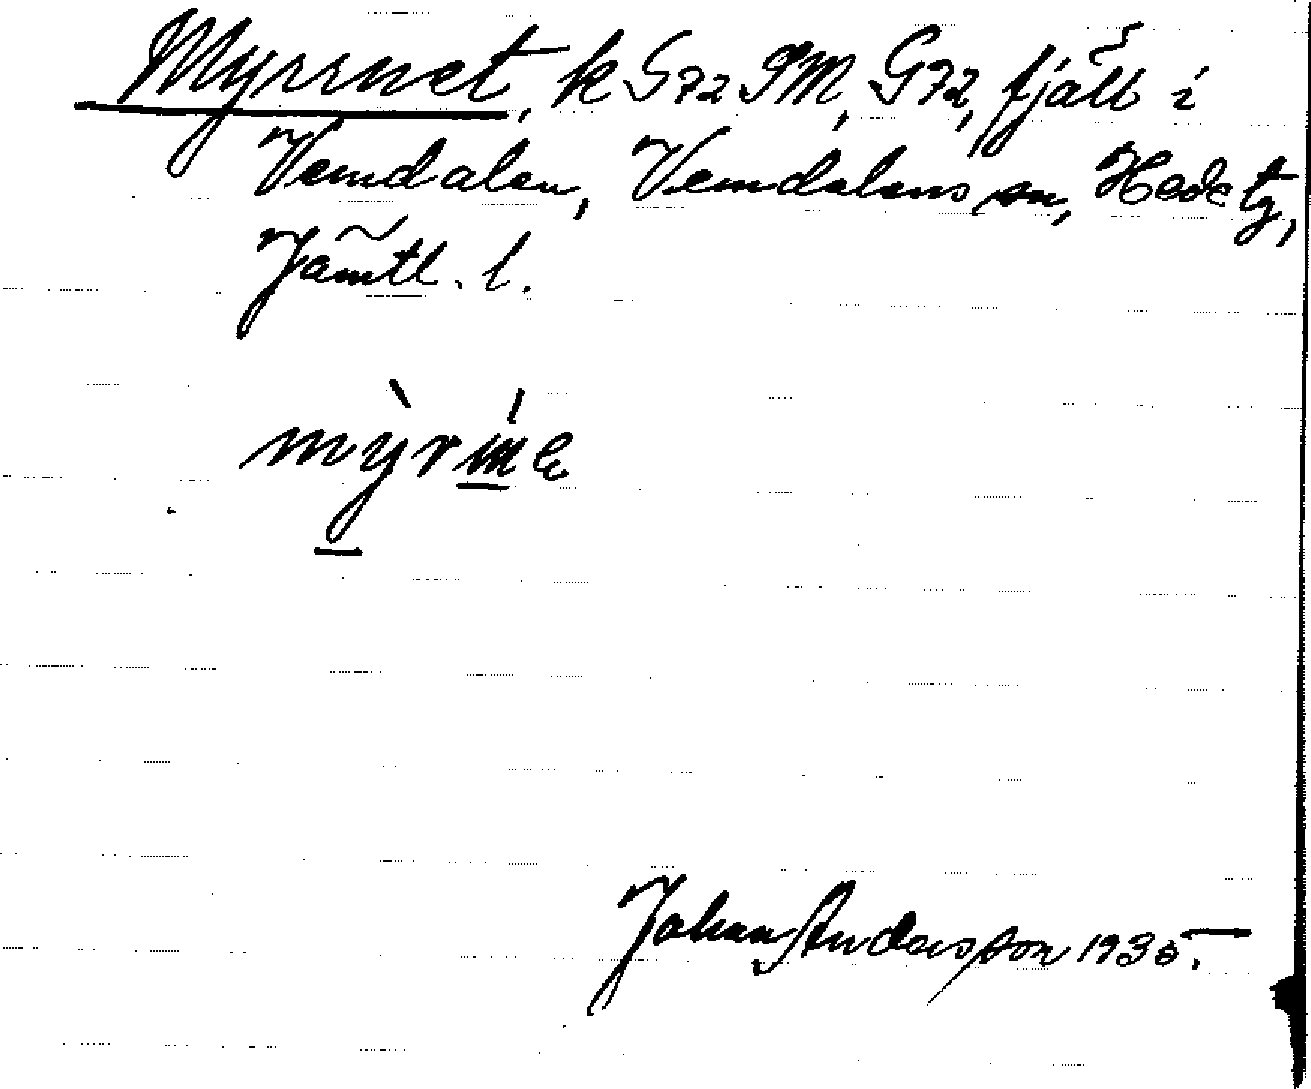 Myrrnet, k G72 SM, G72, fjäll i
Vemdalen, Vemdalens sn, Hede tg,
Jämtl. l.
Johan Andersson 1935.